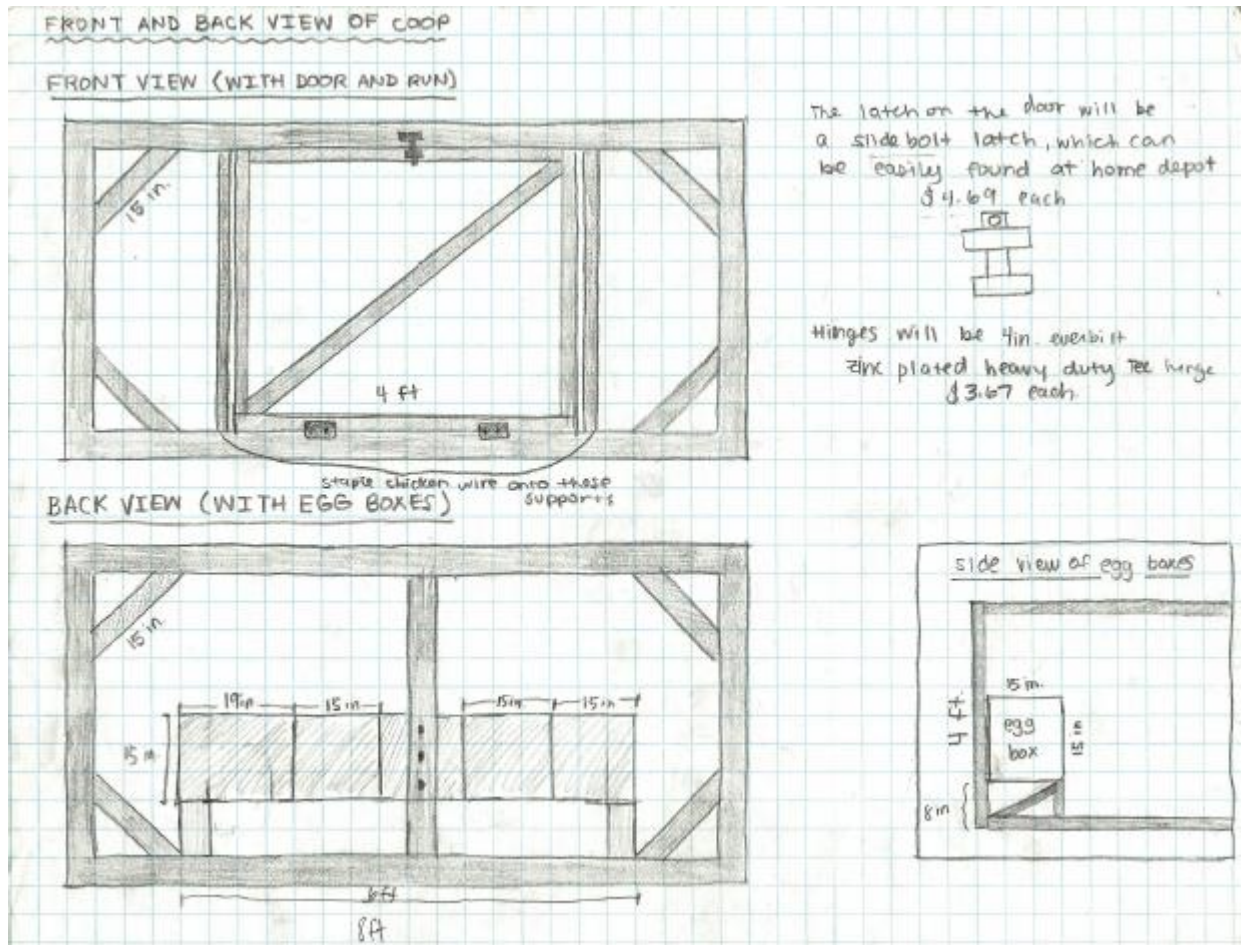 FRONT AND BACK VIEW OF COOP
FRONT VIEW (WITH DOOR AND RUN)
15 in.
4 ft
staple chicken wire onto those
supports
The latch on the door will be
a slidebolt latch, which can
be easily found at home depot
$4.69 each
Hinges will be 4in. everbilt
zinc plated heavy duty Tee hinge
$3.67 each.
BACK VIEW (WITH EGG BOXES)
15 in
19in
15 in
15in
15in
15 in
6ft
8ft
side view of egg boxes
15 in.
4 ft.
egg
box
15 in
8in